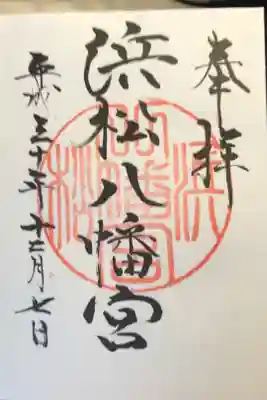 奉拝
浜松八幡宮
平成三十年十二月七日